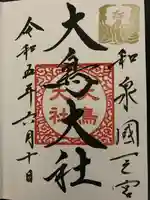 和泉國一宮
大鳥大社
大鳥大社
令和五年六月十日